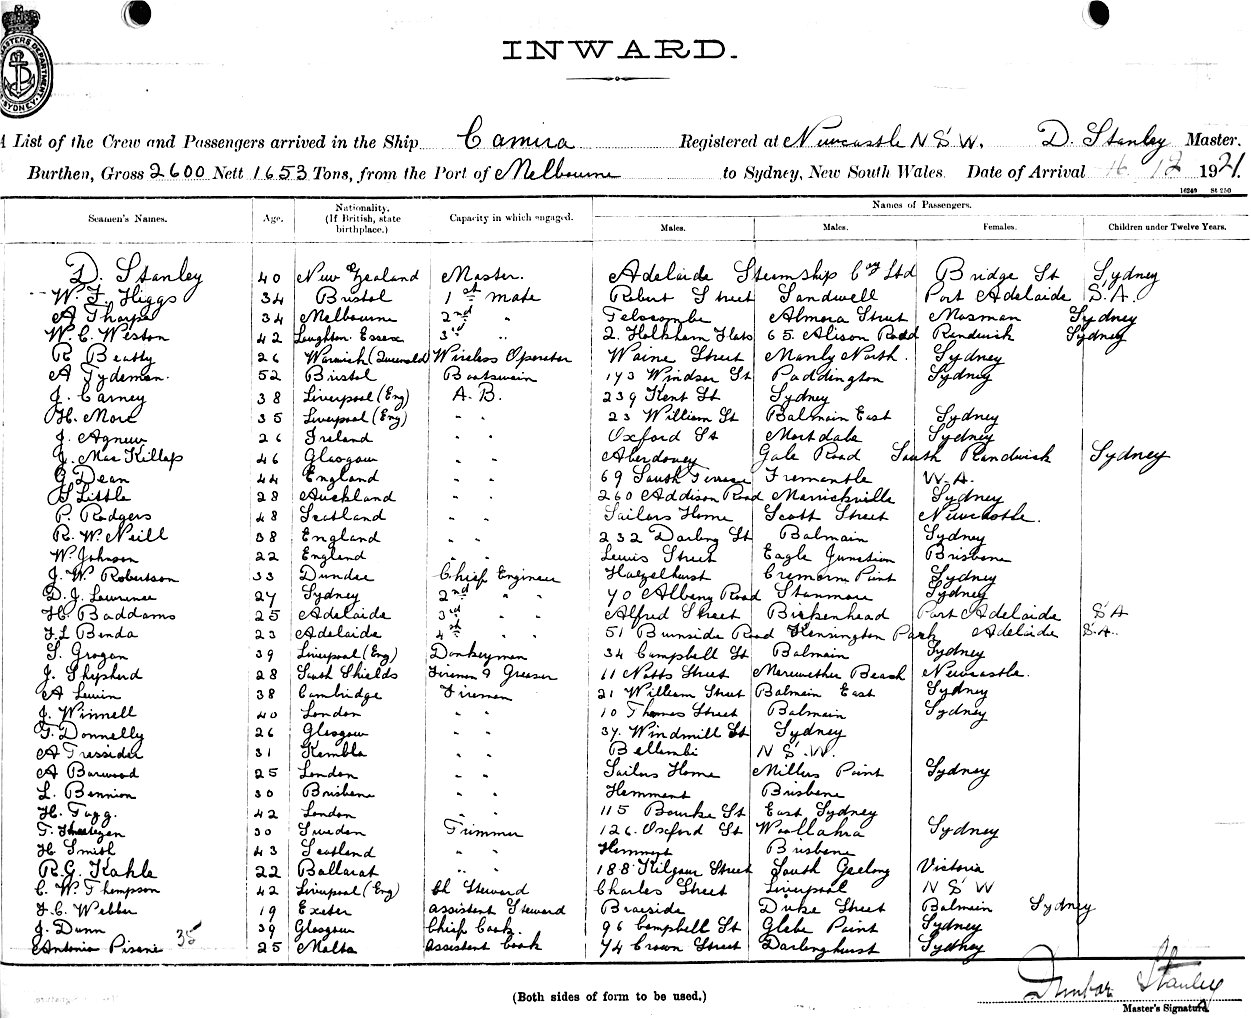 MASTERS DEPARTMENT SYDNEY
INWARD.
A List of the Crew and Passengers arrived in the Ship Camira Registered at Newcastle N S W. D. Stanley Master.
Burthen, Gross 2600 Nett 1653 Tons, from the Port of Melbourne to Sydney, New South Wales. Date of Arrival 16 12 1921.
16249 St 250
Seamen's Names. Age. Nationality. (If British, state birthplace.) Capacity in which engaged. Names of Passengers.
Males. Males. Females. Children under Twelve Years.
D. Stanley 40 New Zealand Master. Adelaide Steamship Coy Ltd Bridge St Sydney
W. F. Higgs 34 Bristol 1st mate Robert Street Sandwell Port Adelaide S.A.
A Tharpe 34 Melbourne 2nd " Almora Street Mosman Sydney
W. C. Weston 42 Loughton. Essex 3rd " 2. Holkham Flats 65. Alison Road Randwick Sydney
R. Beatty 26 Warwick (Queensld) Wireless Operator Waine Street Manly North. Sydney
A Tydeman. 52 Bristol Boatswain 193 Windsor St Paddington Sydney
J. Carney 38 Liverpool (Eng) A. B. 239 Kent St Sydney
H. More 35 Liverpool (Eng) " " 23 William St Balmain East Sydney
J. Agnew 26 Ireland " " Oxford St Mortdale Sydney
J. MacKillop 46 Glasgow " " Gale Road South Randwick Sydney
G Dean 44 England " " 69 South Terrace Fremantle W.A.
S Little 28 Auckland " " 260 Addison Road Marrickville Sydney
P. Rodgers 48 Scotland " " Sailors Home Scott Street Newcastle.
R. W. Neill 38 England " " 232 Darling St Balmain Sydney
W. Johnson 22 England " " Lewis Street Eagle Junction Brisbane
J. W. Robertson 33 Dundee Chief Engineer Hazelhurst Cremorn Point Sydney
D. J. Lawrence 27 Sydney 2nd " " 70 Albany Road Stanmore Sydney
H. Baddams 25 Adelaide 3rd " " Alfred Street Birkenhead Port Adelaide S A
F L Benda 23 Adelaide 4th " " 51 Burnside Road Kensington Park Adelaide S.A.
S. Grogan 39 Liverpool (Eng) Donkeyman 34 Campbell St Balmain Sydney
J. Shepherd 28 South Shields Fireman & Greaser 11 Notts Street Merewether Beach Newcastle.
A Lewin 38 Cambridge Fireman 21 William Street Balmain East Sydney
J. Winnell 40 London " " 10 Thomas Street Balmain Sydney
F. Donnelly 26 Glasgow " " 37. Windmill St Sydney
A Tressider 31 Kembla " " Bellambi N S. W.
A Barwood 25 London " " Sailors Home Millers Point Sydney
L. Bennion 30 Brisbane " " Hemmant Brisbane
H. Tagg. 42 London " " 115 Bourke St East Sydney
30 Sweden Trimmer 126. Oxford St Woollahra Sydney
H Smith 43 Scotland " " Hemmant Brisbane
R. G. Kahle 22 Ballarat " " 188 Kilgour Street South Geelong Victoria
C. W. Thompson 42 Liverpool (Eng) Ch Steward Charles Street Liverpool N S W
F. C. Webber 19 Exeter assistent Steward Braeside Duke Street Balmain Sydney
J. Dunn 39 Glasgow Chief Cook. 96 Campbell St Glebe Point Sydney
Antonio Pisani 35 25 Malta assistent Cook 74 Crown Street Darlinghurst Sydney
(Both sides of form to be used.)
Dunbar Stanley
Master's Signature